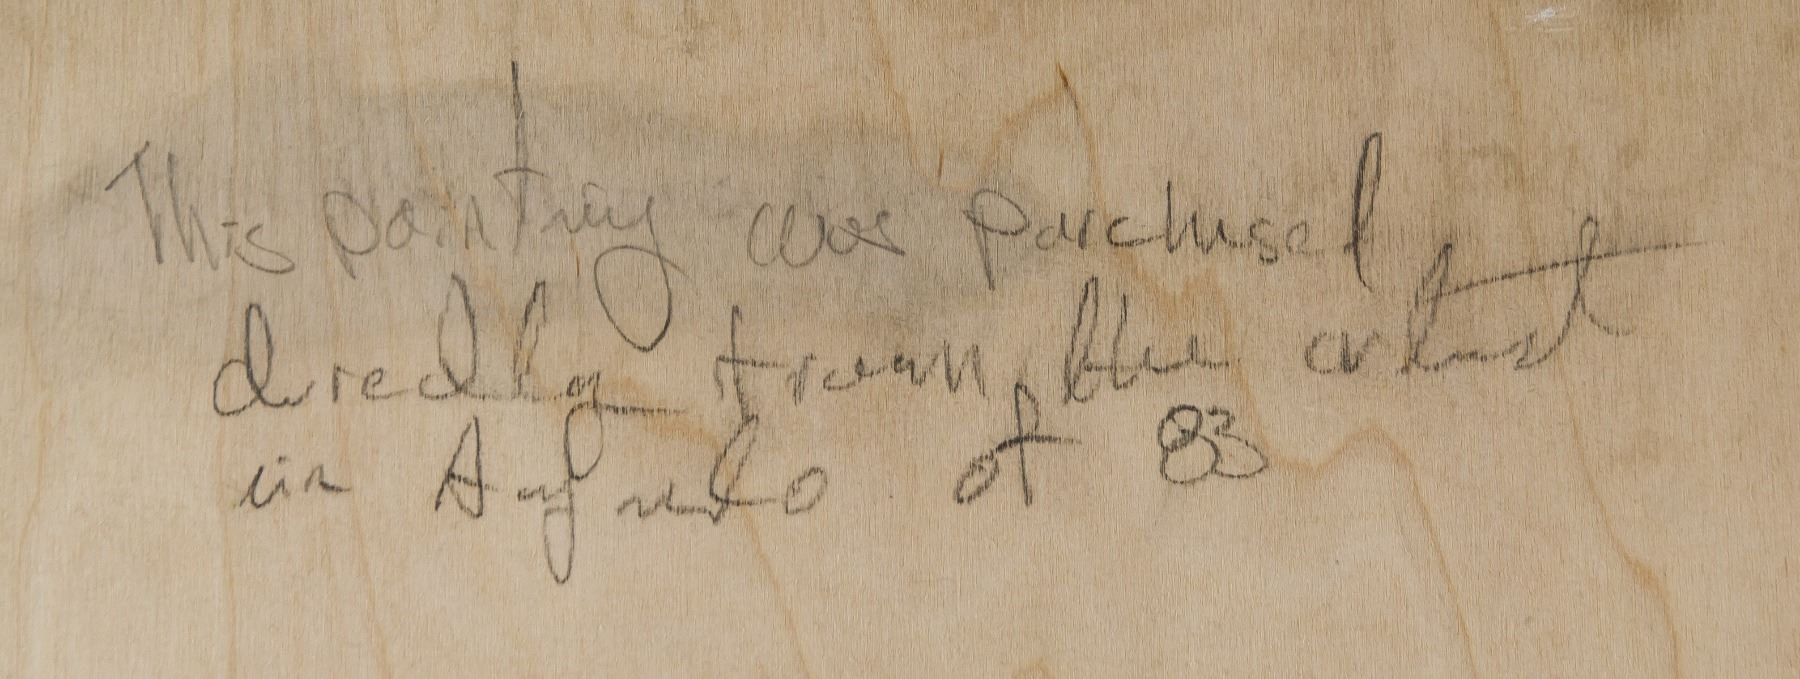 This painting was purchased
directly from the artist
in August of 83